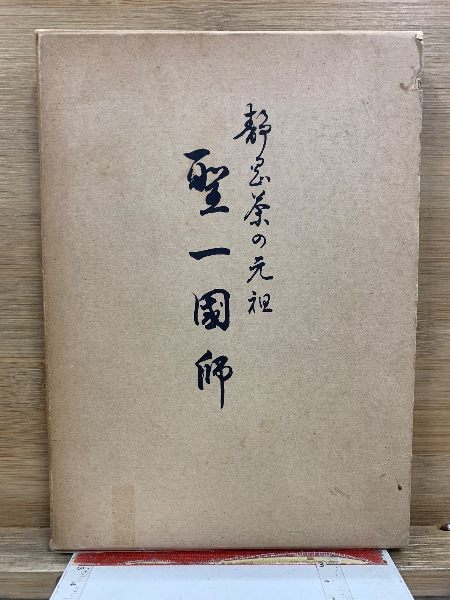 静岡茶の元祖
聖一國師